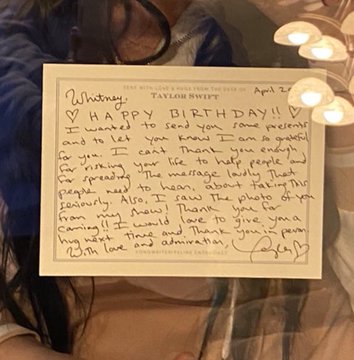 SENT WITH LOVE & HUGS FROM THE DESK OF
TAYLOR SWIFT
April 20
Whitney,
♡ HAPPY BIRTHDAY!! ♡
I wanted to send you some presents
and to let you know I am so grateful
for you. I can't thank you enough
for risking your life to help people and
for spreading the message loudly that
people need to hear, about taking this
seriously. Also, I saw the photo of you
from my show! Thank you for
coming!! I would love to give you a
hug next time and thank you in person
With love and admiration,